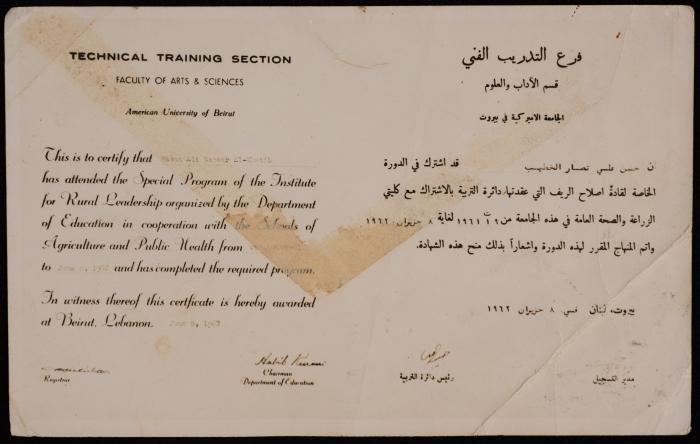 TECHNICAL TRAINING SECTION
FACULTY OF ARTS & SCIENCES
American University of Beirut
This is to certify that
has attended the Special Program of the Institute
for Rural Leadership organized by the Department
of Education in cooperation with the Schools of
Agriculture and Public Health from
to June 8, 1962 and has completed the required program.
In witness thereof this certficate is hereby awarded
at Beirut, Lebanon. June 8, 1962
Registrar
Habib Kurani
Chairman
Department of Education
فرع التدريب الفني
قسم الآداب والعلوم
الجامعة الاميركية في بيروت
ان حسن علي نصار الخطيب قد اشترك في الدورة
الخاصة لقادة اصلاح الريف التي عقدتها دائرة التربية بالاشتراك مع كليتي
الزراعة والصحة العامة في هذه الجامعة من ١٩٦١ لغاية ٨ حزيران ١٩٦٢
واتم المنهاج المقرر لهذه الدورة واشعاراً بذلك منح هذه الشهادة.
بيروت، لبنان في ٨ حزيران ١٩٦٢
رئيس دائرة التربية
مدير التسجيل